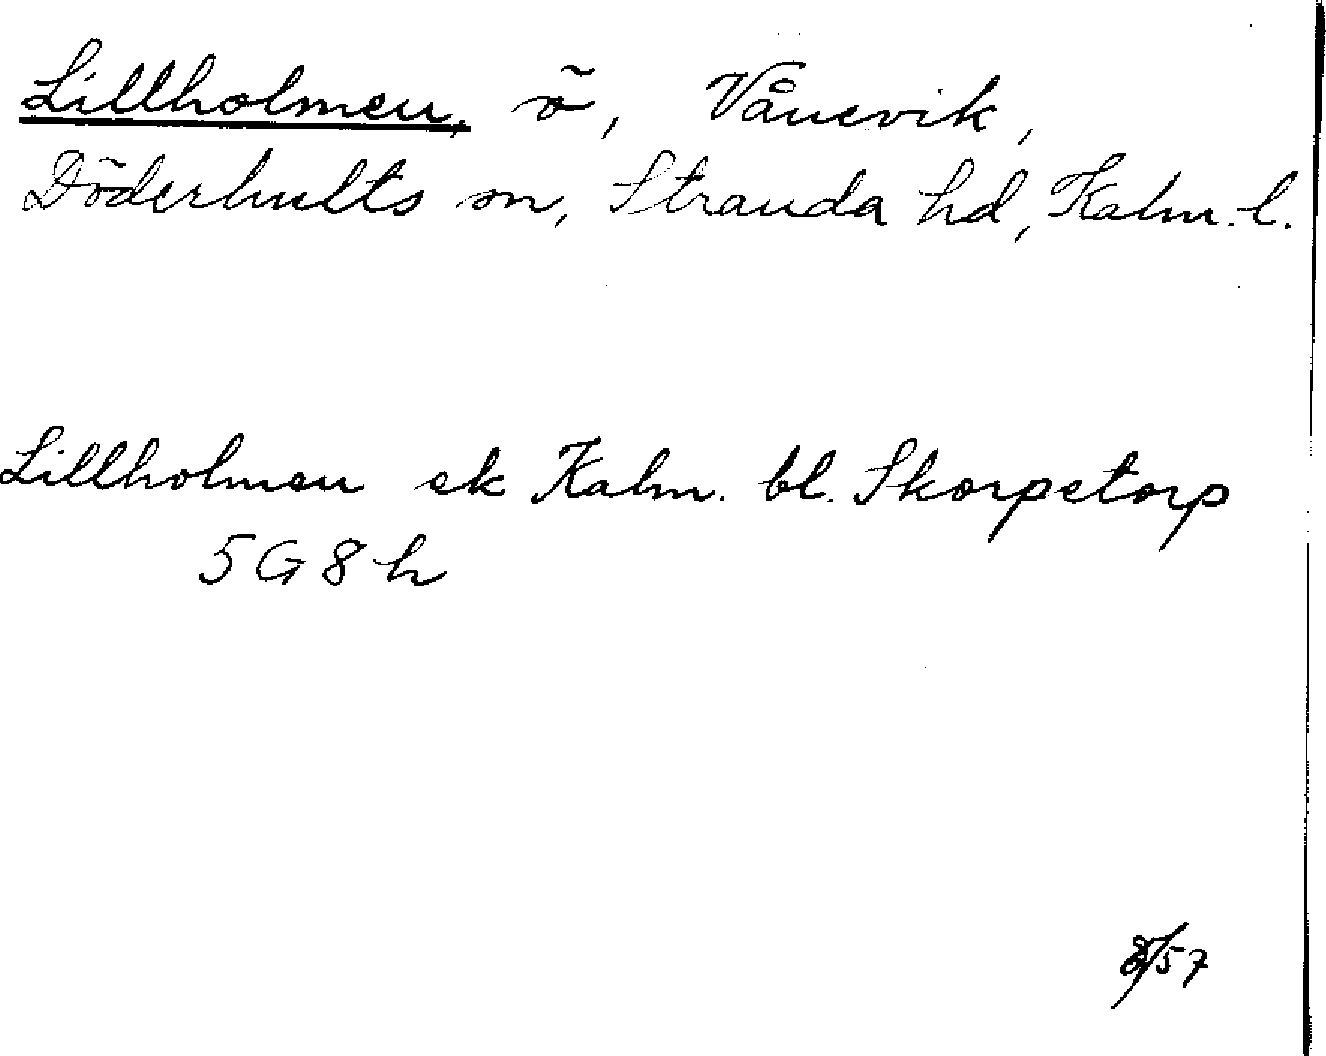 Lillholmen, ö, Vånevik,
Döderhults sn, Stranda hd, Kalm. l.
Lillholmen ek Kalm. bl. Skorpetorp
5G8h
8/57